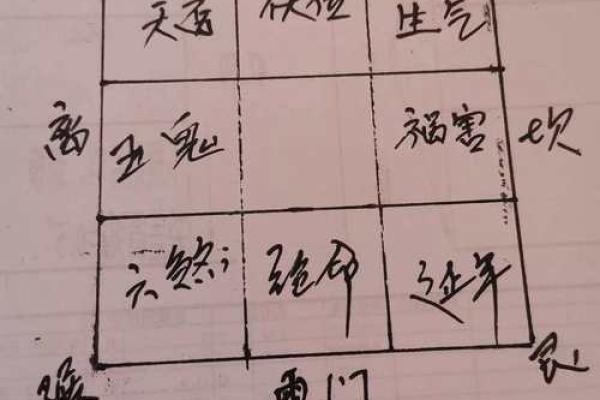 天医 伏位 生气
离 五鬼 祸害 坎
六煞 绝命 延年
艮
门